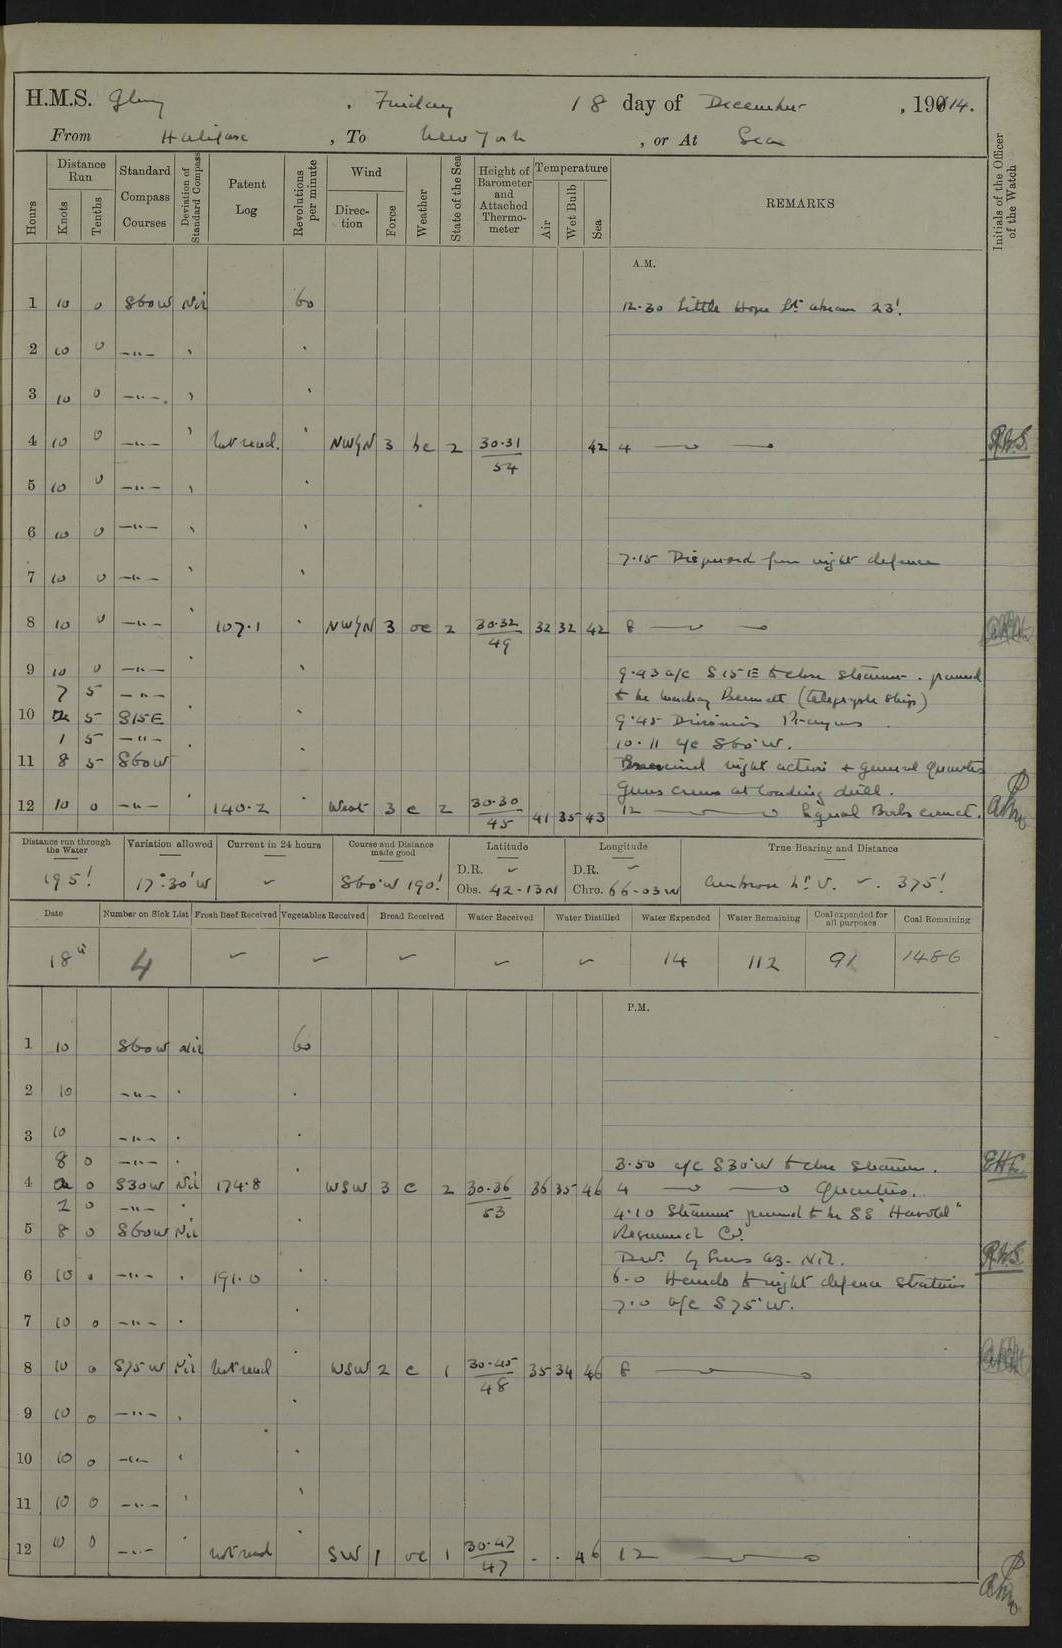 H.M.S. Glory , Friday 18 day of December , 1914.
From Halifax , To New York , or At Sea
Hours
Distance Run
Knots
Tenths
Standard Compass Courses
Deviation of Standard Compass
Patent Log
Revolutions per minute
Wind
Direction
Force
Weather
State of the Sea
Height of Barometer and Attached Thermometer
Temperature
Air
Wet Bulb
Sea
REMARKS
Initials of the Officer of the Watch
A.M.
1 10 0 S60W Nil 60 12.30 Little Hope Lt abeam 23'.
2 10 0 —"— "
3 10 0 —"— "
4 10 0 —"— " Not read. " NWbyN 3 bc 2 30.31 42 4
54
R.W.S.
5 10 0 —"— "
6 10 0 —"— "
7.15 Dispersed from night defence
7 10 0 —"— "
8 10 0 —"— " 107.1 " NWbyN 3 oc 2 30.32 32 32 42 8
49
9 10 0 —"— "
9.43 a/c S15E to close steamer. proved
7 5 —"—
to be Mackay Bennett (telegraph ship)
10 2 5 S15E
9.45 Divisions Prayers
1 5 —"—
10.11 a/c S60°W.
11 8 5 S60W
Exercised night action & general quarters
Guns crews at loading drill.
12 10 0 —"— 140.2 " West 3 c 2 30.30 41 35 43 12 Signal Books correct.
45
Distance run through the Water
Variation allowed
Current in 24 hours
Course and Distance made good
Latitude
Longitude
True Bearing and Distance
195'
17°.30'W
S60°W 190'
D.R.
Obs. 42-13N
D.R.
Chro. 66-03W
Ambrose Lt V. 375'
Date
Number on Sick List
Fresh Beef Received
Vegetables Received
Bread Received
Water Received
Water Distilled
Water Expended
Water Remaining
Coal expended for all purposes
Coal Remaining
18th 4 14 112 91 1486
P.M.
1 10 S60W Nil 60
2 10 —"— "
3 10 —"— "
8 0 —"— "
3.50 a/c S30°W to close steamer.
4 2 0 S30W Nil 174.8 WSW 3 c 2 30.36 36 35 46 4 Quarters.
53
2 0 —"— "
4.10 Steamer proved to be SS "Harold"
5 8 0 S60W Nil
Dev. by Suns Az. Nil.
R.W.S.
6 10 0 —"— " 191.0 " 6.0 Hands to night defence stations
7.0 a/c S75°W.
7 10 0 —"— "
8 10 0 S75W Nil Not read " WSW 2 c 1 30.45 35 34 46 8
48
9 10 0 —"— "
10 10 0 —"— "
11 10 0 —"— "
12 10 0 —"— " Not read " SW 1 oc 1 30.47 . . 46 12
47